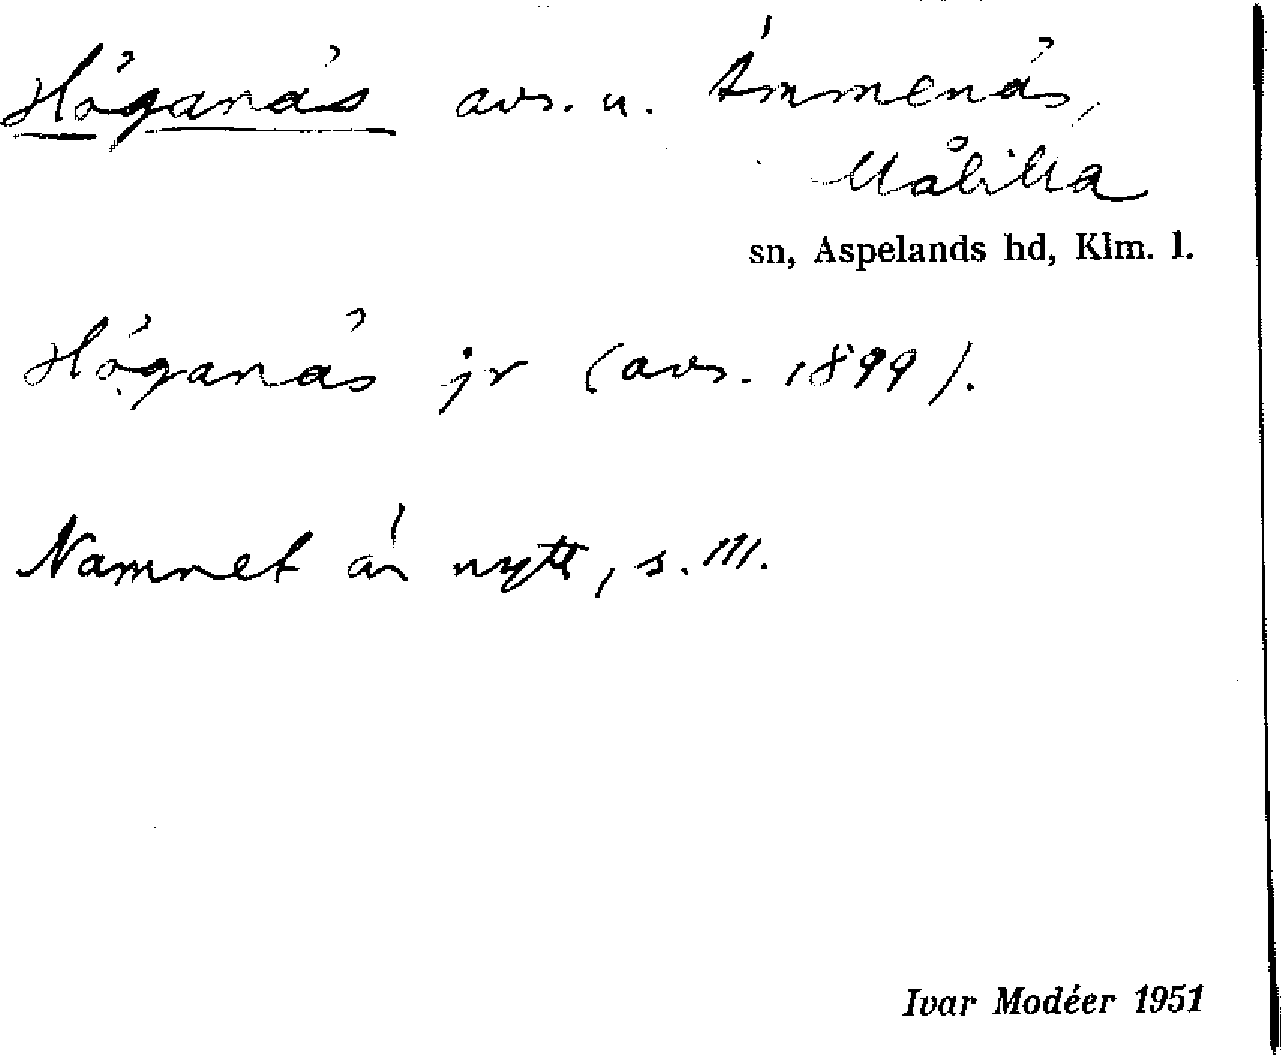 Höganäs avs. u. Ämmenäs,
Målilla
sn, Aspelands hd, Klm. l.
Höganäs jr (avs. 1899).
Namnet är nytt, s. 111.
Ivar Modéer 1951